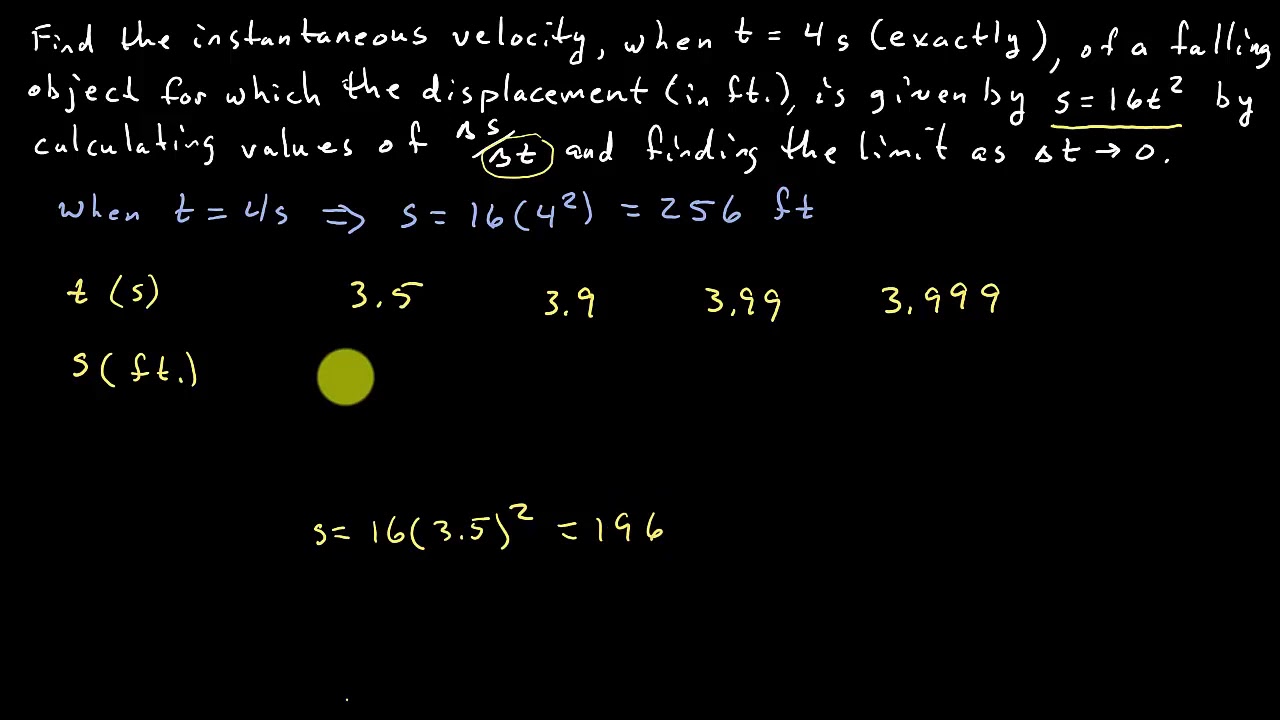 Find the instantaneous velocity, when t = 4s (exactly), of a falling
object for which the displacement (in ft.), is given by s = 16t² by
calculating values of Δs/Δt and finding the limit as Δt → 0.
when t = 4s ⇒ s = 16(4²) = 256 ft
t (s) 3.5 3.9 3.99 3.999
s (ft.)
s = 16(3.5)² = 196